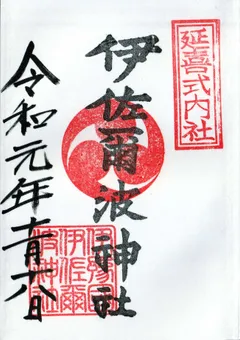 延喜式内社
伊佐爾波神社
令和元年十一月十六日
伊豫国
伊佐爾
波神社